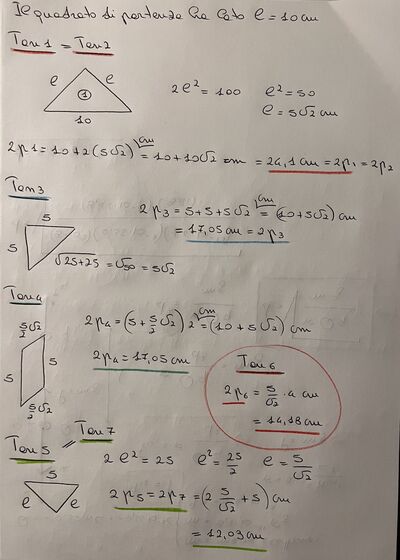 Il quadrato di partenza ha lato l = 10 cm
Tan 1 = Tan 2
l l
①
10
2l² = 100 l² = 50
l = 5√2 cm
2p1 = 10 + 2(5√2) cm = 10 + 10√2 cm = 24,1 cm = 2p1 = 2p2
Tan 3
5
5
√25+25 = √50 = 5√2
2p3 = 5 + 5 + 5√2 cm = (10 + 5√2) cm
= 17,05 cm = 2p3
Tan 4
5/2 √2
5 5
5/2 √2
2p4 = (5 + 5/2 √2) 2 cm = (10 + 5√2) cm
2p4 = 17,05 cm
Tan 6
2p6 = 5/√2 · 4 cm
= 14,18 cm
Tan 5 = Tan 7
5
l l
2l² = 25 l² = 25/2 l = 5/√2
2p5 = 2p7 = (2 5/√2 + 5) cm
= 12,03 cm